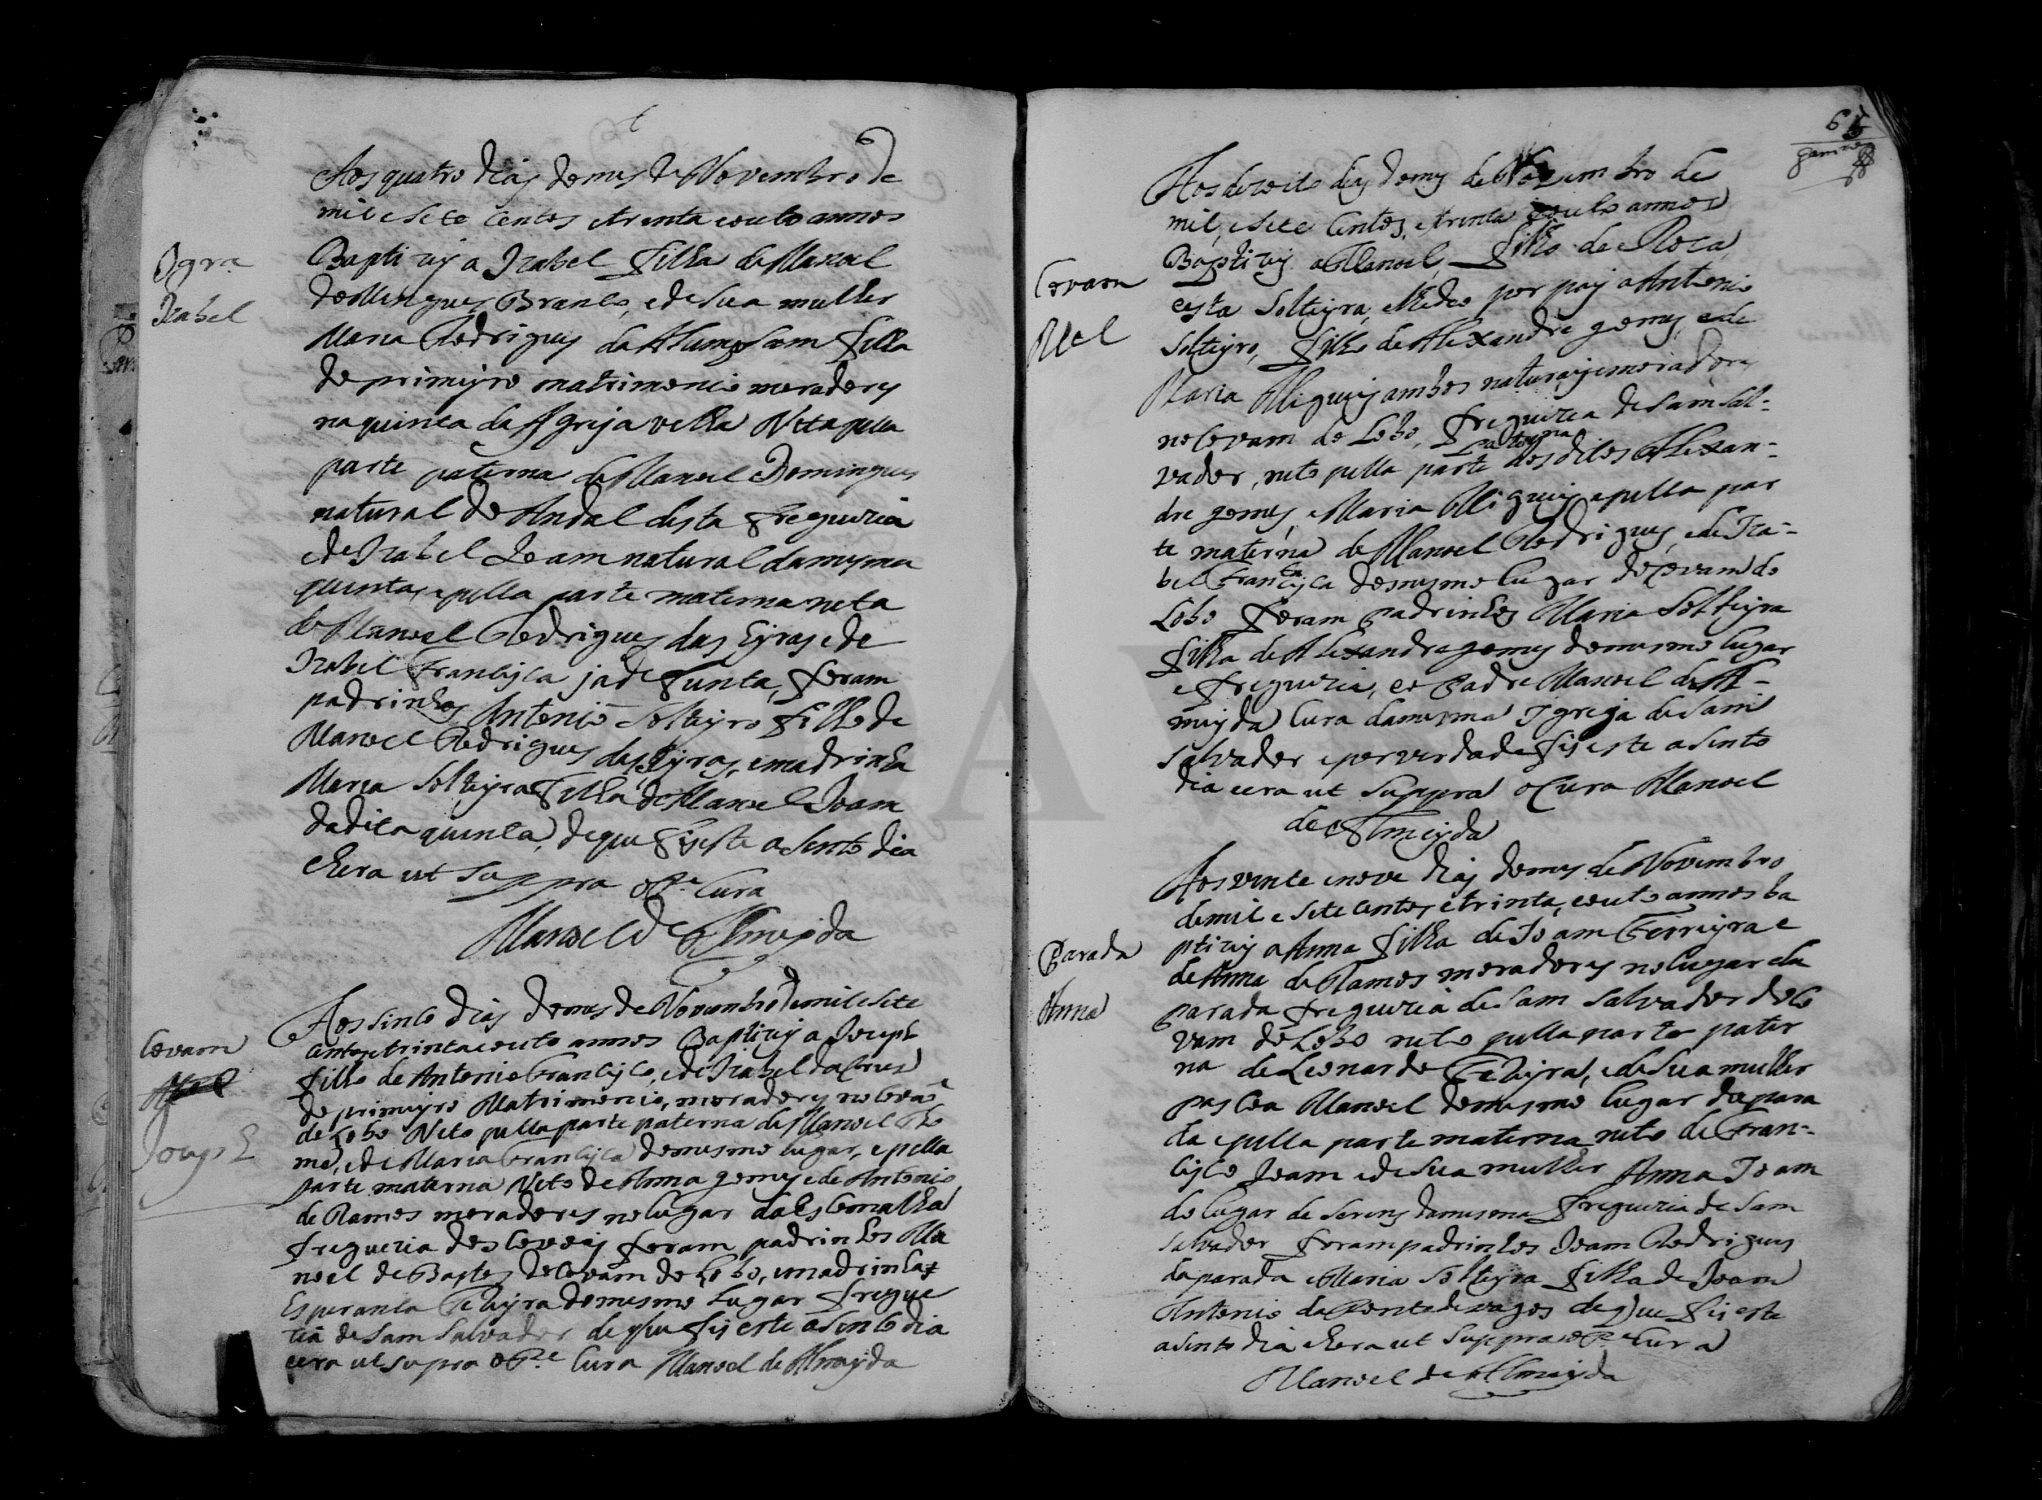 Aos quatro dias do mes de Novembro de
mil e sete centos e trinta e outo annos
Baptizej a Izabel filha de Manoel
Domingues Branco, e de sua mulher
Maria Rodrigues da Assumpsam filha
de primeyro matrimonio moradores
na quinta da Igreja velha Neta pella
parte paterna de Manoel Domingues
natural de Andal desta freguezia
e de Izabel Joam natural da mesma
quinta, e pella parte materna neta
de Manoel Rodrigues das Eyras e de
Izabel Francisca ja defunta, foram
padrinhos Antonio solteyro filho de
Manoel Rodrigues das Eyras, e madrinha
Maria solteyra filha de Manoel Joam
da dita quinta, de que fis este asento dia
e hera ut suppra o Pe. Cura
Manoel de Almeyda
Igra.
Izabel
Aos sinco dias do mes de Novembro de mil e sete
centos e trinta e outo annos Baptizej a Joseph
filho de Antonio Francisco, e de Izabel da Crus
de primeyro Matrimonio, moradores no Covão
de Lobo Neto pella parte paterna de Manoel Tho
me, e de Maria Francisca do mesmo lugar, e pella
parte materna Neto de Anna gomes e de Antonio
de Ramos moradores no lugar da Estomalha
freguezia dos Covois foram padrinhos Ma
noel de Bastos de Covam de Lobo, e madrinha
Esperanca Teixyra do mesmo lugar fregue
zia de Sam Salvador de que fis este asento dia
e era ut supra o Pe. Cura Manoel de Almeyda
Covam
Jouzeh
65
Aos dezoito dias do mes de Novembro de
mil, e sete centos, e trinta e outo annos
Baptizej a Manoel, filho de Roza,
esta solteyra, e lhe deo por pay a Antonio
solteyro, filho de Alexandre gomes, e de
Maria Miguejs ambos naturais e moradores
no Covam de Lobo, freguezia de Sam Sal-
vador, neto pella parte paterna dos ditos Alexan-
dre gomes, e Maria Miguejs, e pella par
te materna de Manoel Rodrigues, e de Iza-
bel Francisca do mesmo lugar de Covam do
Lobo foram Padrinhos Maria solteyra
filha de Alexandre gomes do mesmo lugar
e freguezia, e o Padre Manoel de Al-
meyda Cura da mesma Igreja de Sam
Salvador e por verdade fis este asento
dia e era ut suppra o Cura Manoel
de Almeyda
Covam
Mel
Aos vinte e nove dias do mes de Novembro
de mil e sete centos, e trinta, e outo annos ba
ptizej a Anna filha de Joam Ferreyra e
de Anna de Ramos moradores no lugar da
parada freguezia de Sam Salvador de Co
vam de Lobo neto pella parte pater
na de Leonardo Teixyra, e de sua mulher
Pascoa Manoel do mesmo lugar da para
da e pella parte materna neto de Fran-
cisco Joam e de sua mulher Anna Joam
do lugar de Serens da mesma freguezia de Sam
Salvador foram padrinhos Joam Rodrigues
da parada e Maria solteyra filha de Joam
Antonio da Ponte de vagos de que fis este
asento dia e hera ut suppra o Pe. Cura
Manoel de Almeyda
Parada
Anna